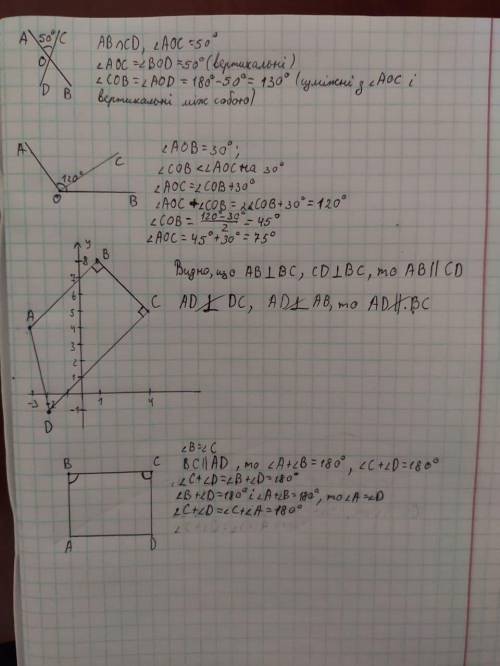 A 50° C
O
D B
AB∩CD, ∠AOC=50°
∠AOC=∠BOD=50° (вертикальні)
∠COB=∠AOD=180°-50°=130° (суміжні з ∠AOC і
вертикальні між собою)
A
120° C
O B
∠AOB=30°;
∠COB<∠AOC на 30°
∠AOC=∠COB+30°
∠AOC+∠COB=2∠COB+30°=120°
∠COB=\frac{120-30°}{2}=45°
∠AOC=45°+30°=75°
y
8 B
7
6
5 C
A 4
3
2
1
-3 -2 1 4
-1
D
Видно, що AB⊥BC, CD⊥BC, то AB∥CD
AD⊥̸DC, AD⊥̸AB, то AD∦BC
B C
A D
∠B=∠C
BC∥AD, то ∠A+∠B=180°, ∠C+∠D=180°
∠C+∠D=∠B+∠D=180°
∠B+∠D=180° і ∠A+∠B=180°, то ∠A=∠D
∠C+∠D=∠C+∠A=180°